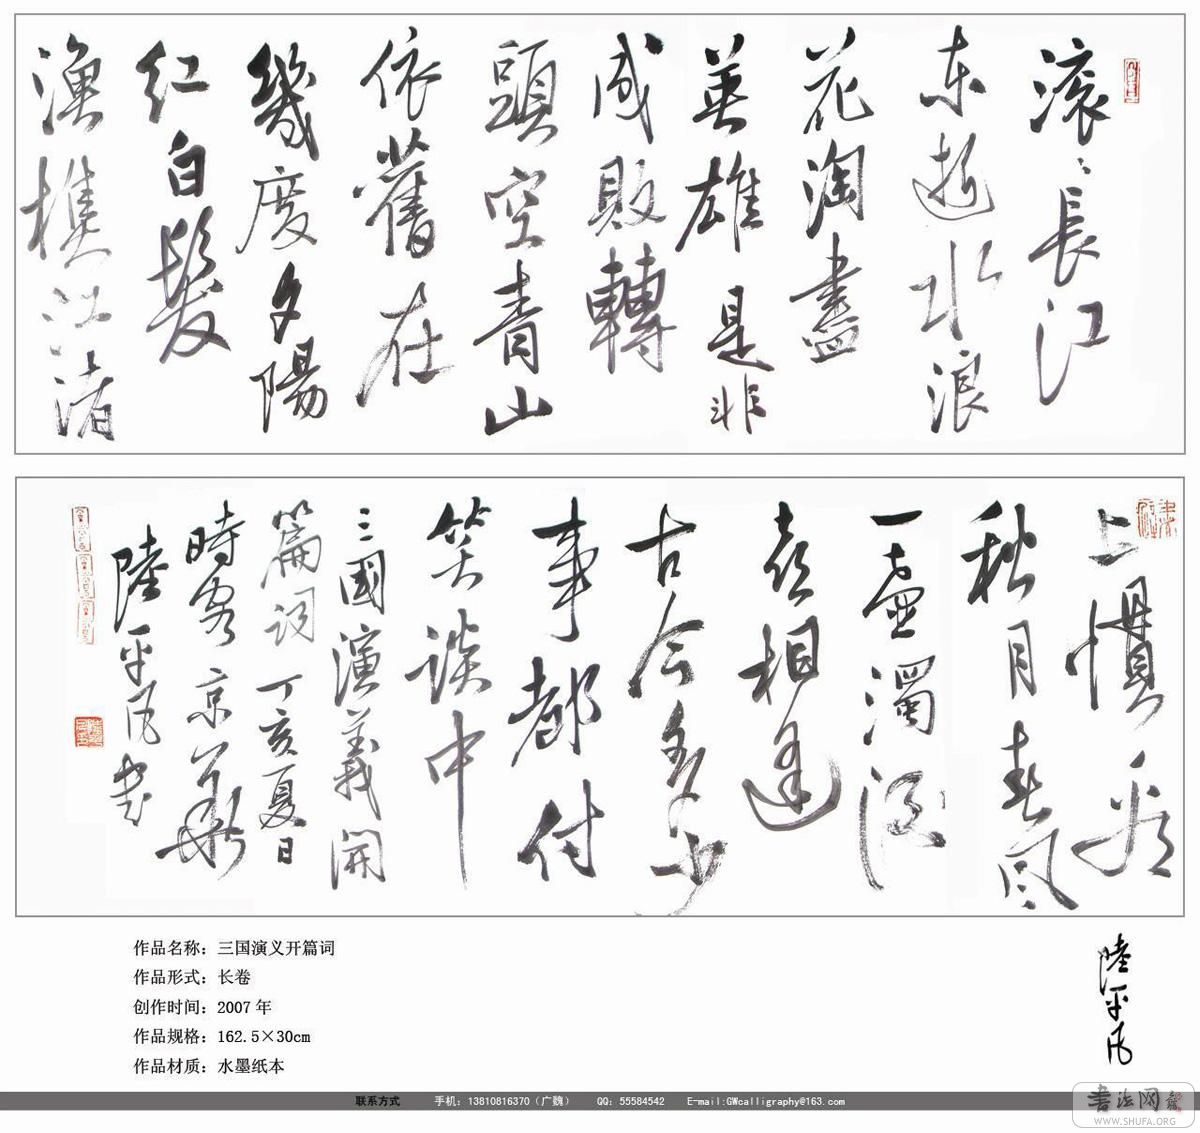 滚〻長江
东逝水浪
花淘盡
英雄是非
成敗轉
頭空青山
依舊在
幾度夕陽
红白髮
漁樵江渚
上慣看
秋月春风
一壶濁酒
喜相逢
古今多少
事都付
笑谈中
三國演義開
篇词丁亥夏日
時客京華
陸平风书
作品名称：三国演义开篇词
作品形式：长卷
创作时间：2007年
作品规格：162.5×30cm
作品材质：水墨纸本
陸平风
联系方式 手机：13810816370（广魏） QQ：55584542 E-mail:GWcalligraphy@163.com
书法网
WWW.SHUFA.ORG